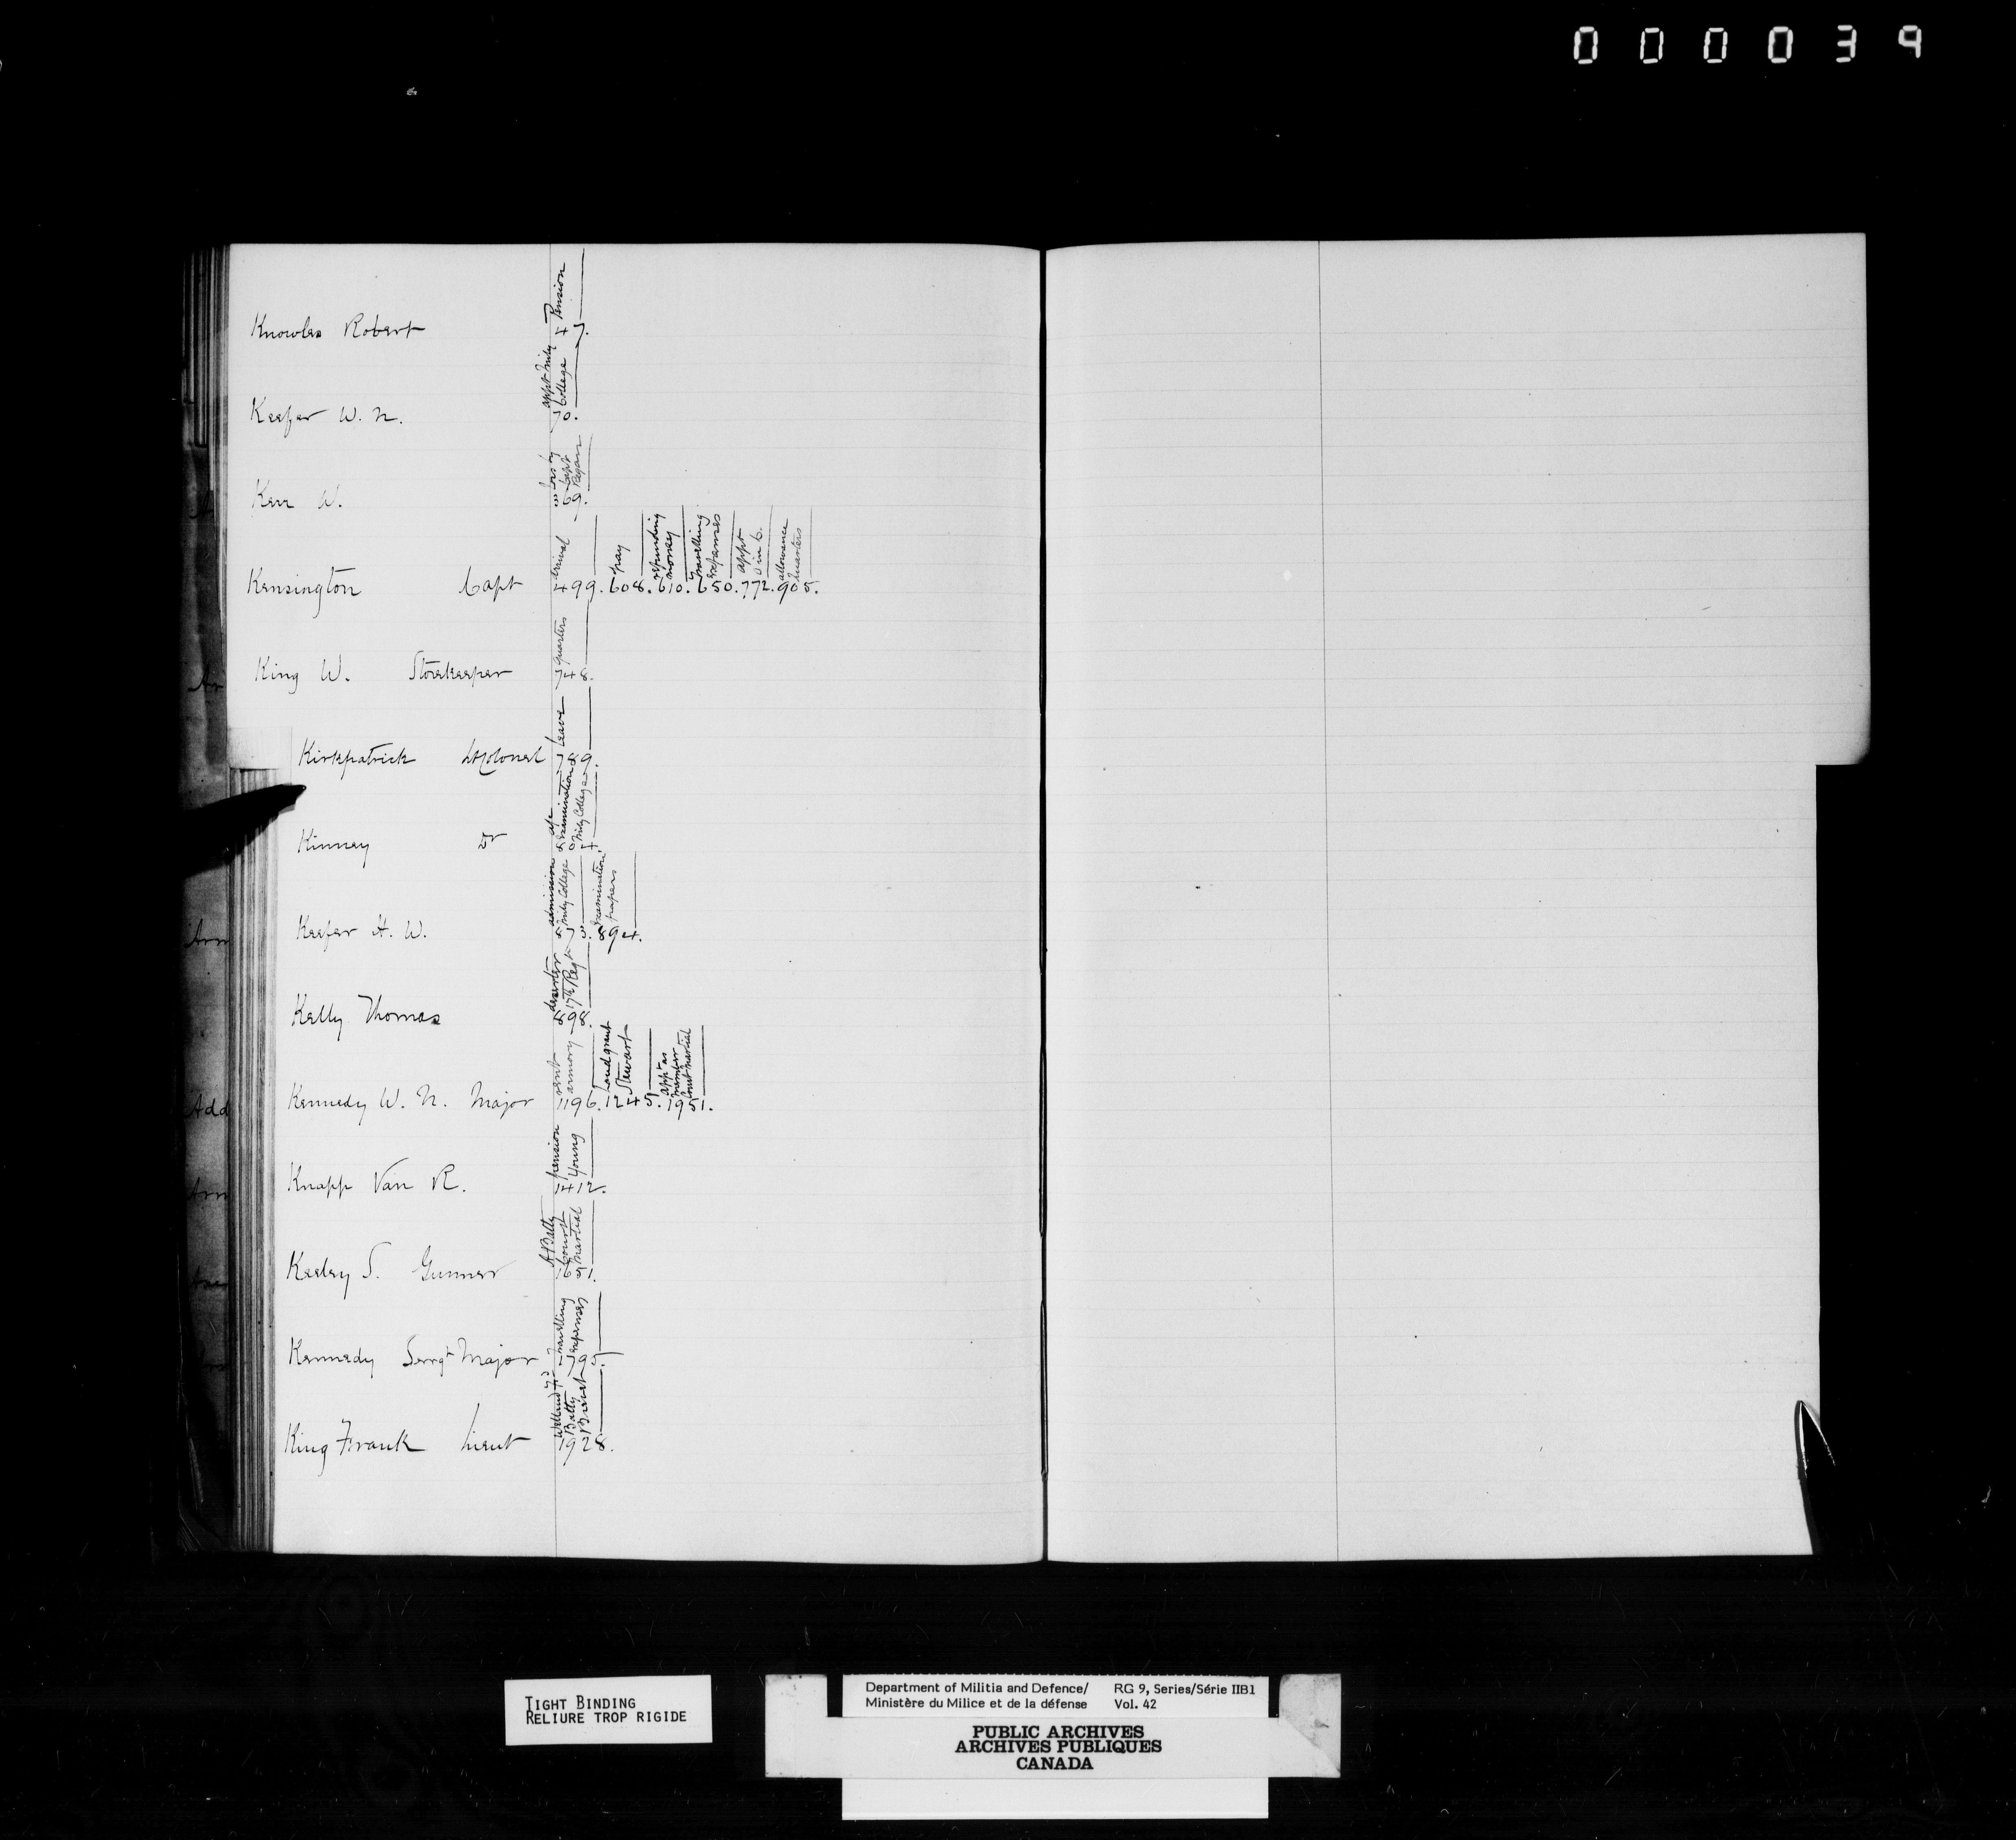 000039
Knowles Robert 47. Pension
Keefer W. N. 70. appt Mily College
Kerr W. 369. Capt Regan
Kensington Capt 499. arrival 608. pay 610. refunding money 650. travelling expenses 772. appt O in C. 905. allowance quarters
King W. Storekeeper 748. quarters
Kirkpatrick Lt Colonel 789. Leave
Kinney Dr examination Mily College
Keefer H. W. 873. admission Mily College 894. examination papers
Kelly Thomas 898. deserter 17th Regt
Kennedy W. N. Major 1196. rent armory 1245. Land grant Stewart 1951. appt as member Court Martial
Knapp Van R. 1412. pension Young
Keeley S. Gunner 1651. A Batty Court Martial
Kennedy Sergt Major 1795. travelling expenses
King Frank Lieut 1928. Welland Batty
Add
TIGHT BINDING
RELIURE TROP RIGIDE
Department of Militia and Defence/ RG 9, Series/Série IIB1
Ministère du Milice et de la défense Vol. 42
PUBLIC ARCHIVES
ARCHIVES PUBLIQUES
CANADA